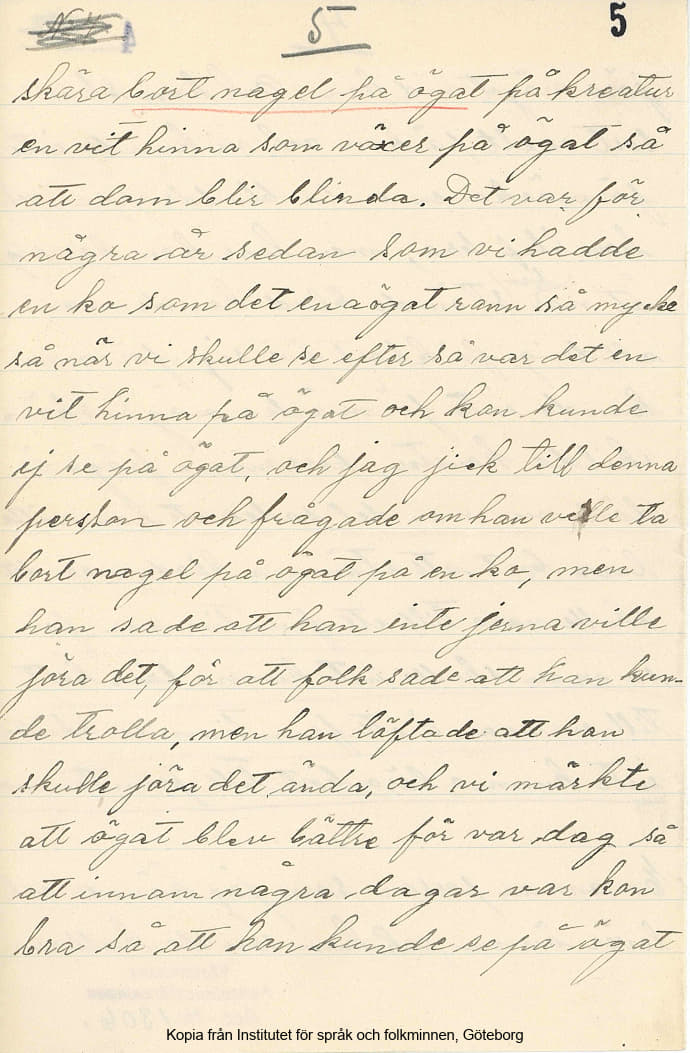 5
5
skära bort nagel på ögat på kreatur
en vit hinna som växer på ögat så
att dom blir blinda. Det var för
några år sedan som vi hadde
en ko som det ena ögat rann så mycke
så när vi skulle se efter så var det en
vit hinna på ögat och kon kunde
ej se på ögat, och jag jick till denna
persson och frågade om han ville ta
bort nagel på ögat på en ko, men
han sade att han inte jerna ville
jöra det, för att folk sade att han kun-
de trolla, men han löftade att han
skulle jöra det ända, och vi märkte
att ögat blev bättre för var dag så
att innam några dagar var kon
bra så att hon kunde se på ögat
Kopia från Institutet för språk och folkminnen, Göteborg